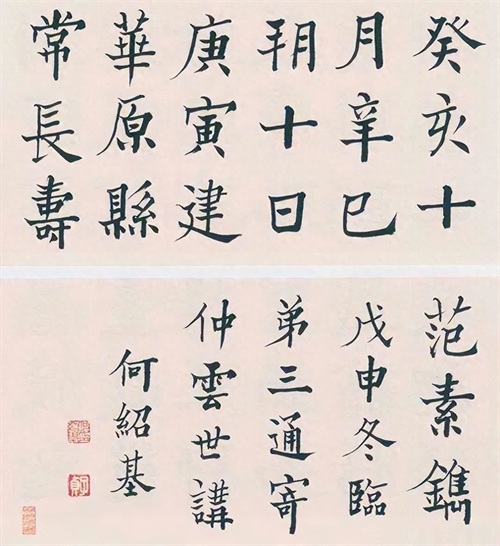 癸亥十
月辛巳
朔十日
庚寅建
華原縣
常長壽
范素鐫
戊申冬臨
弟三通寄
仲雲世講
何紹基